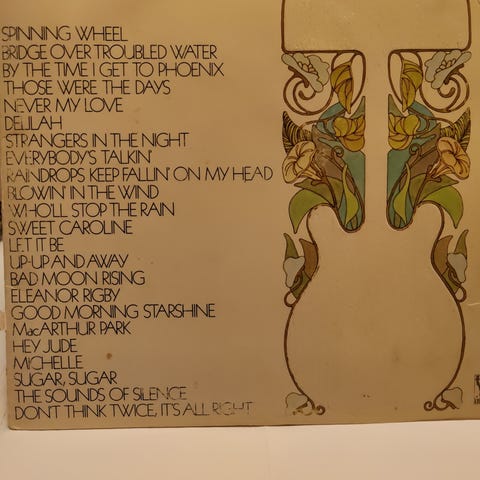 SPINNING WHEEL
BRIDGE OVER TROUBLED WATER
BY THE TIME I GET TO PHOENIX
THOSE WERE THE DAYS
NEVER MY LOVE
DELILAH
STRANGERS IN THE NIGHT
EVERYBODY'S TALKIN'
RAINDROPS KEEP FALLIN' ON MY HEAD
BLOWIN' IN THE WIND
WHO'LL STOP THE RAIN
SWEET CAROLINE
LET IT BE
UP-UP AND AWAY
BAD MOON RISING
ELEANOR RIGBY
GOOD MORNING STARSHINE
MacARTHUR PARK
HEY JUDE
MICHELLE
SUGAR, SUGAR
THE SOUNDS OF SILENCE
DON'T THINK TWICE, IT'S ALL RIGHT